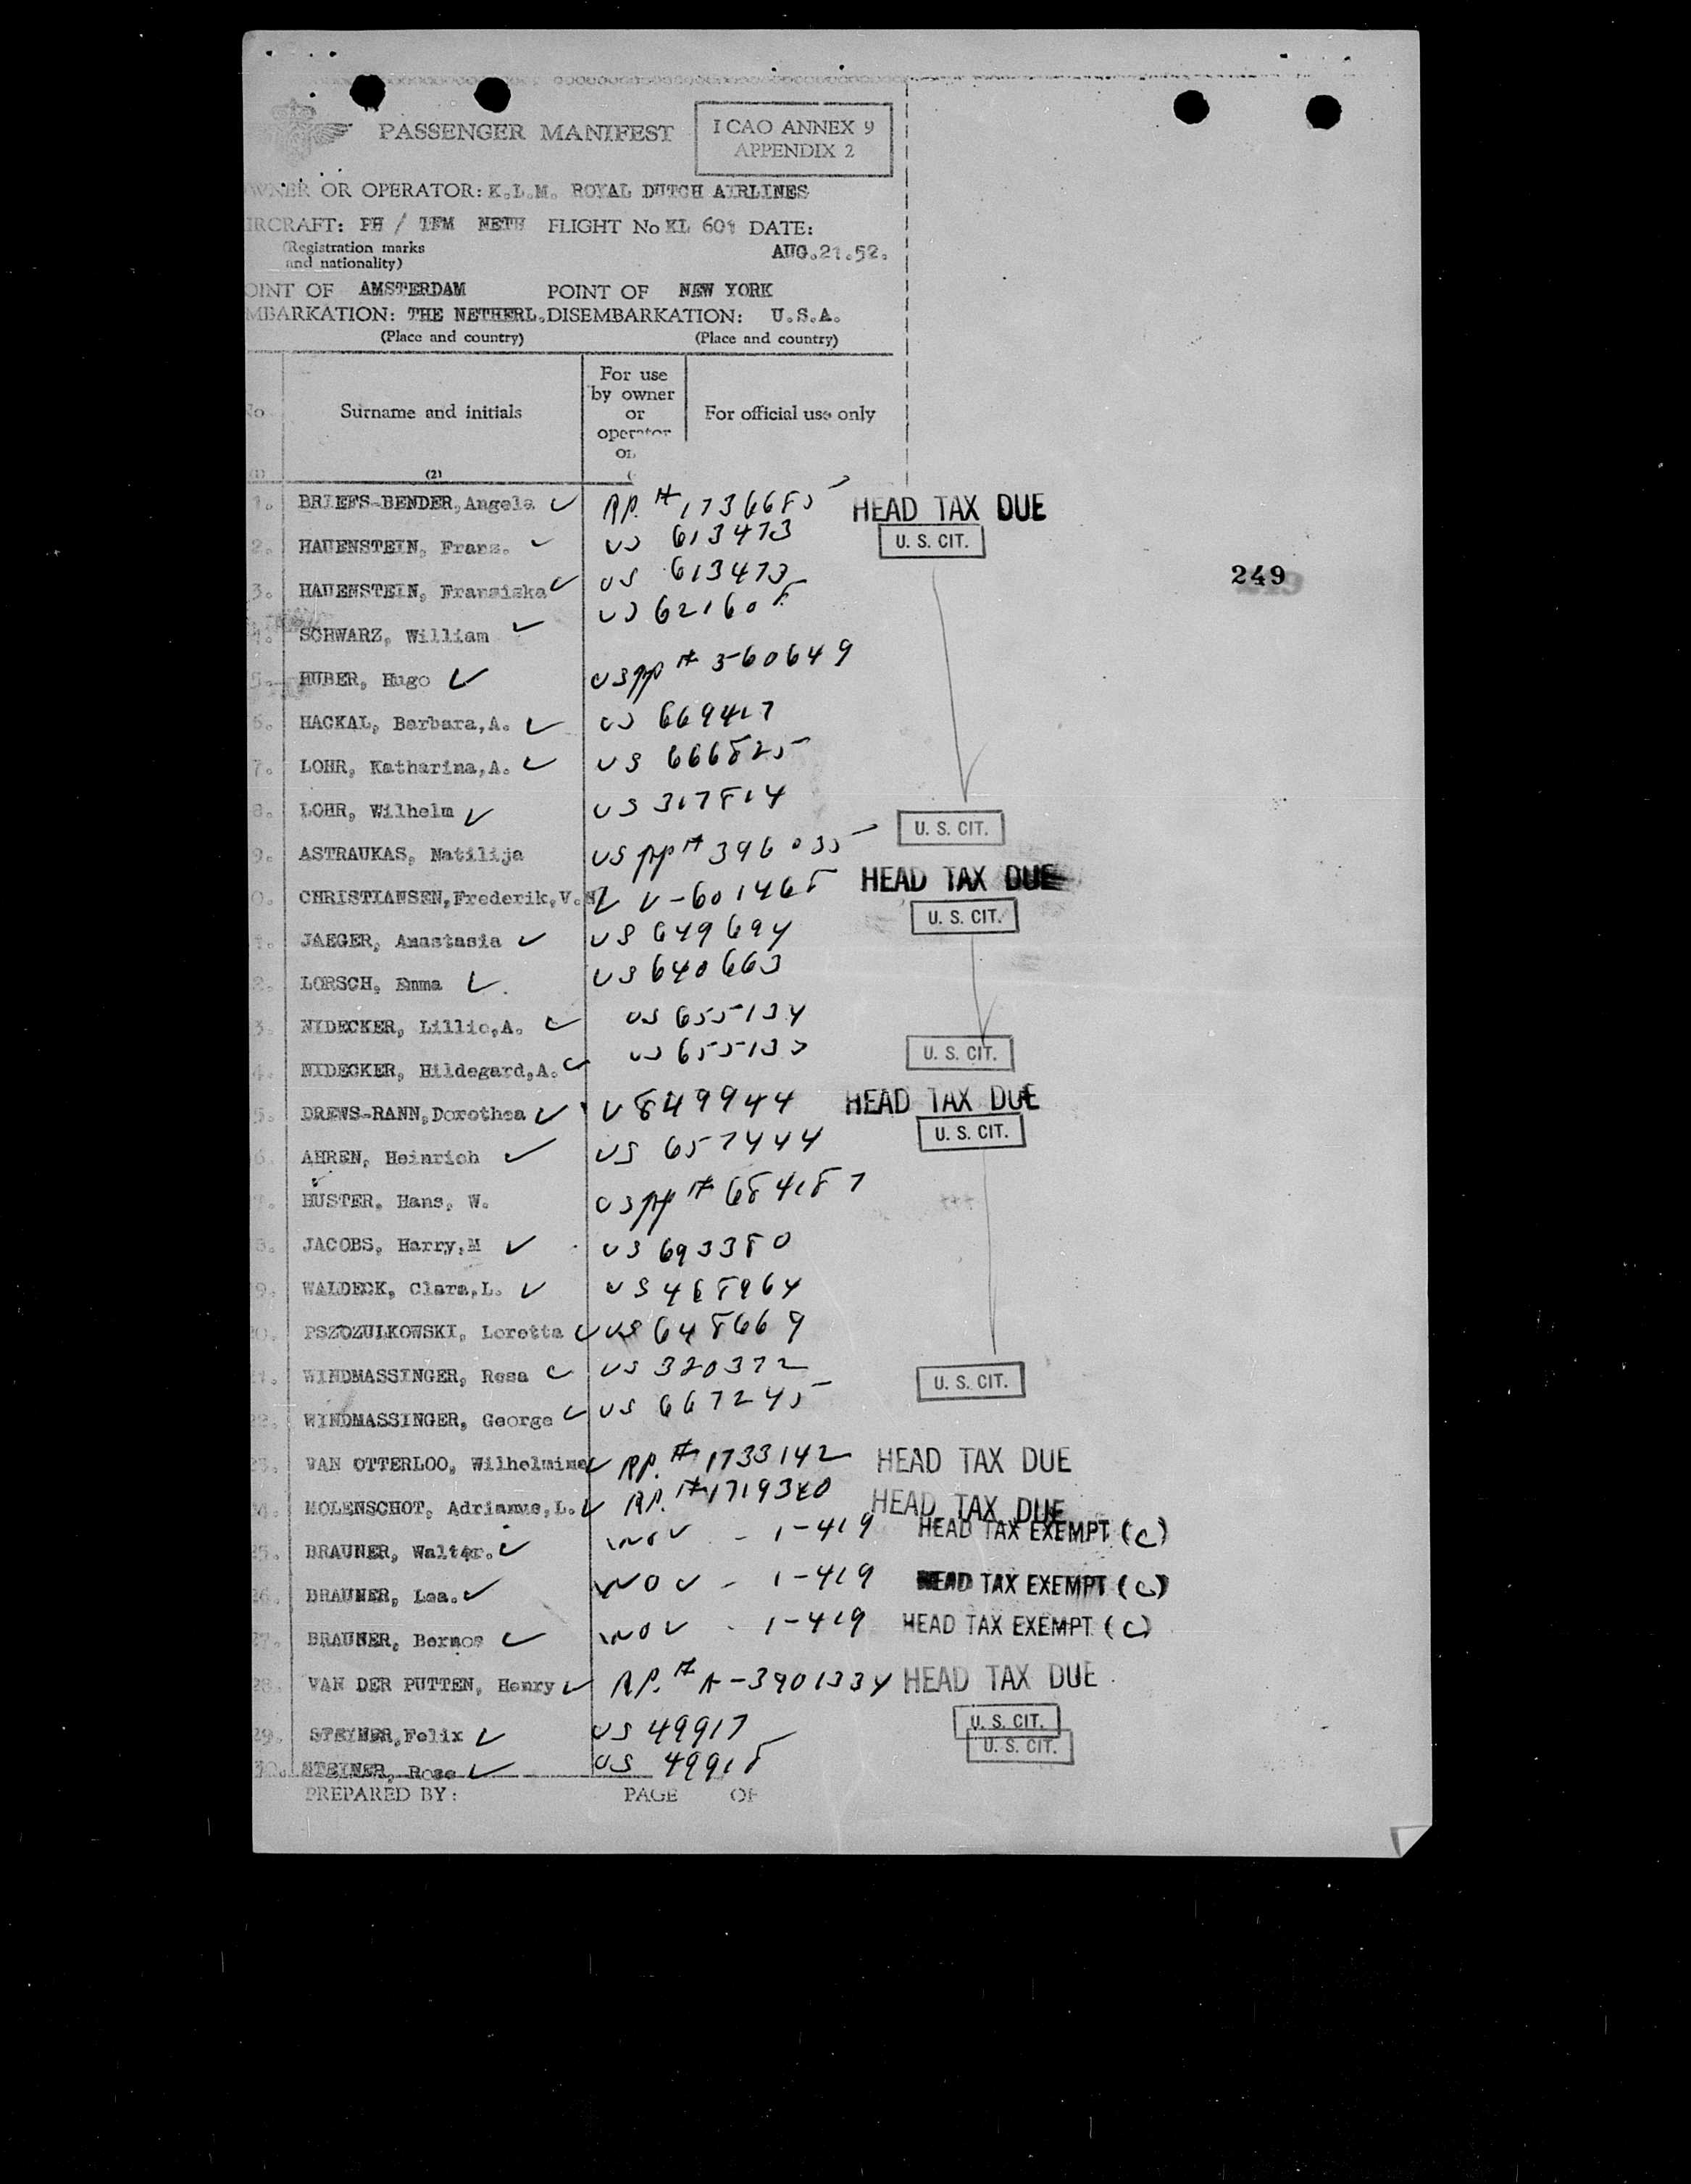 PASSENGER MANIFEST
ICAO ANNEX 9
APPENDIX 2
WNER OR OPERATOR: K.L.M. ROYAL DUTCH AIRLINES
IRCRAFT: PH / TFM NETH FLIGHT No KL 601 DATE:
(Registration marks
and nationality)
AUG.21.52.
OINT OF AMSTERDAM POINT OF NEW YORK
MBARKATION: THE NETHERL. DISEMBARKATION: U.S.A.
(Place and country) (Place and country)
No Surname and initials For use by owner or operator For official use only
(1) (2)
1. BRIEFS-BENDER, Angela RP. # 1736685 HEAD TAX DUE
2. HAUENSTEIN, Franz. US 613473 U. S. CIT.
249
3. HAUENSTEIN, Franziska US 613473
4. SCHWARZ, William US 621608
5. HUBER, Hugo US pp # 560649
6. HACKAL, Barbara,A. US 669417
7. LOHR, Katharina,A. US 666825
8. LOHR, Wilhelm US 317814 U. S. CIT.
9. ASTRAUKAS, Natilija US pp # 396035
0. CHRISTIANSEN, Frederik,V. V-601468 HEAD TAX DUE
1. JAEGER, Anastasia US 649694 U. S. CIT.
2. LORSCH, Emma US 640663
3. NIDECKER, Lillie,A. US 655134
4. NIDECKER, Hildegard,A. US 655133 U. S. CIT.
5. DREWS-RANN, Dorothea V 849944 HEAD TAX DUE
6. AHREN, Heinrich US 657444 U. S. CIT.
7. HUSTER, Hans, W. US pp # 684187
8. JACOBS, Harry,M US 693380
9. WALDECK, Clara,L. US 468964
20. PSZOZULKOWSKI, Loretta US 648669
21. WINDMASSINGER, Rosa US 320372 U. S. CIT.
22. WINDMASSINGER, George US 667245
23. VAN OTTERLOO, Wilhelmina RP. # 1733142 HEAD TAX DUE
24. MOLENSCHOT, Adrianus,L. RP. # 1719380 HEAD TAX DUE
25. BRAUNER, Walter. 1-419 HEAD TAX EXEMPT (C)
26. BRAUNER, Lea. 1-419 HEAD TAX EXEMPT (C)
27. BRAUNER, 1-419 HEAD TAX EXEMPT (C)
28. VAN DER PUTTEN, Henry RP. # A-3901334 HEAD TAX DUE
29. STEINER, Felix US 49917 U. S. CIT.
30. STEINER, Rose US 49918 U. S. CIT.
PREPARED BY: PAGE OF